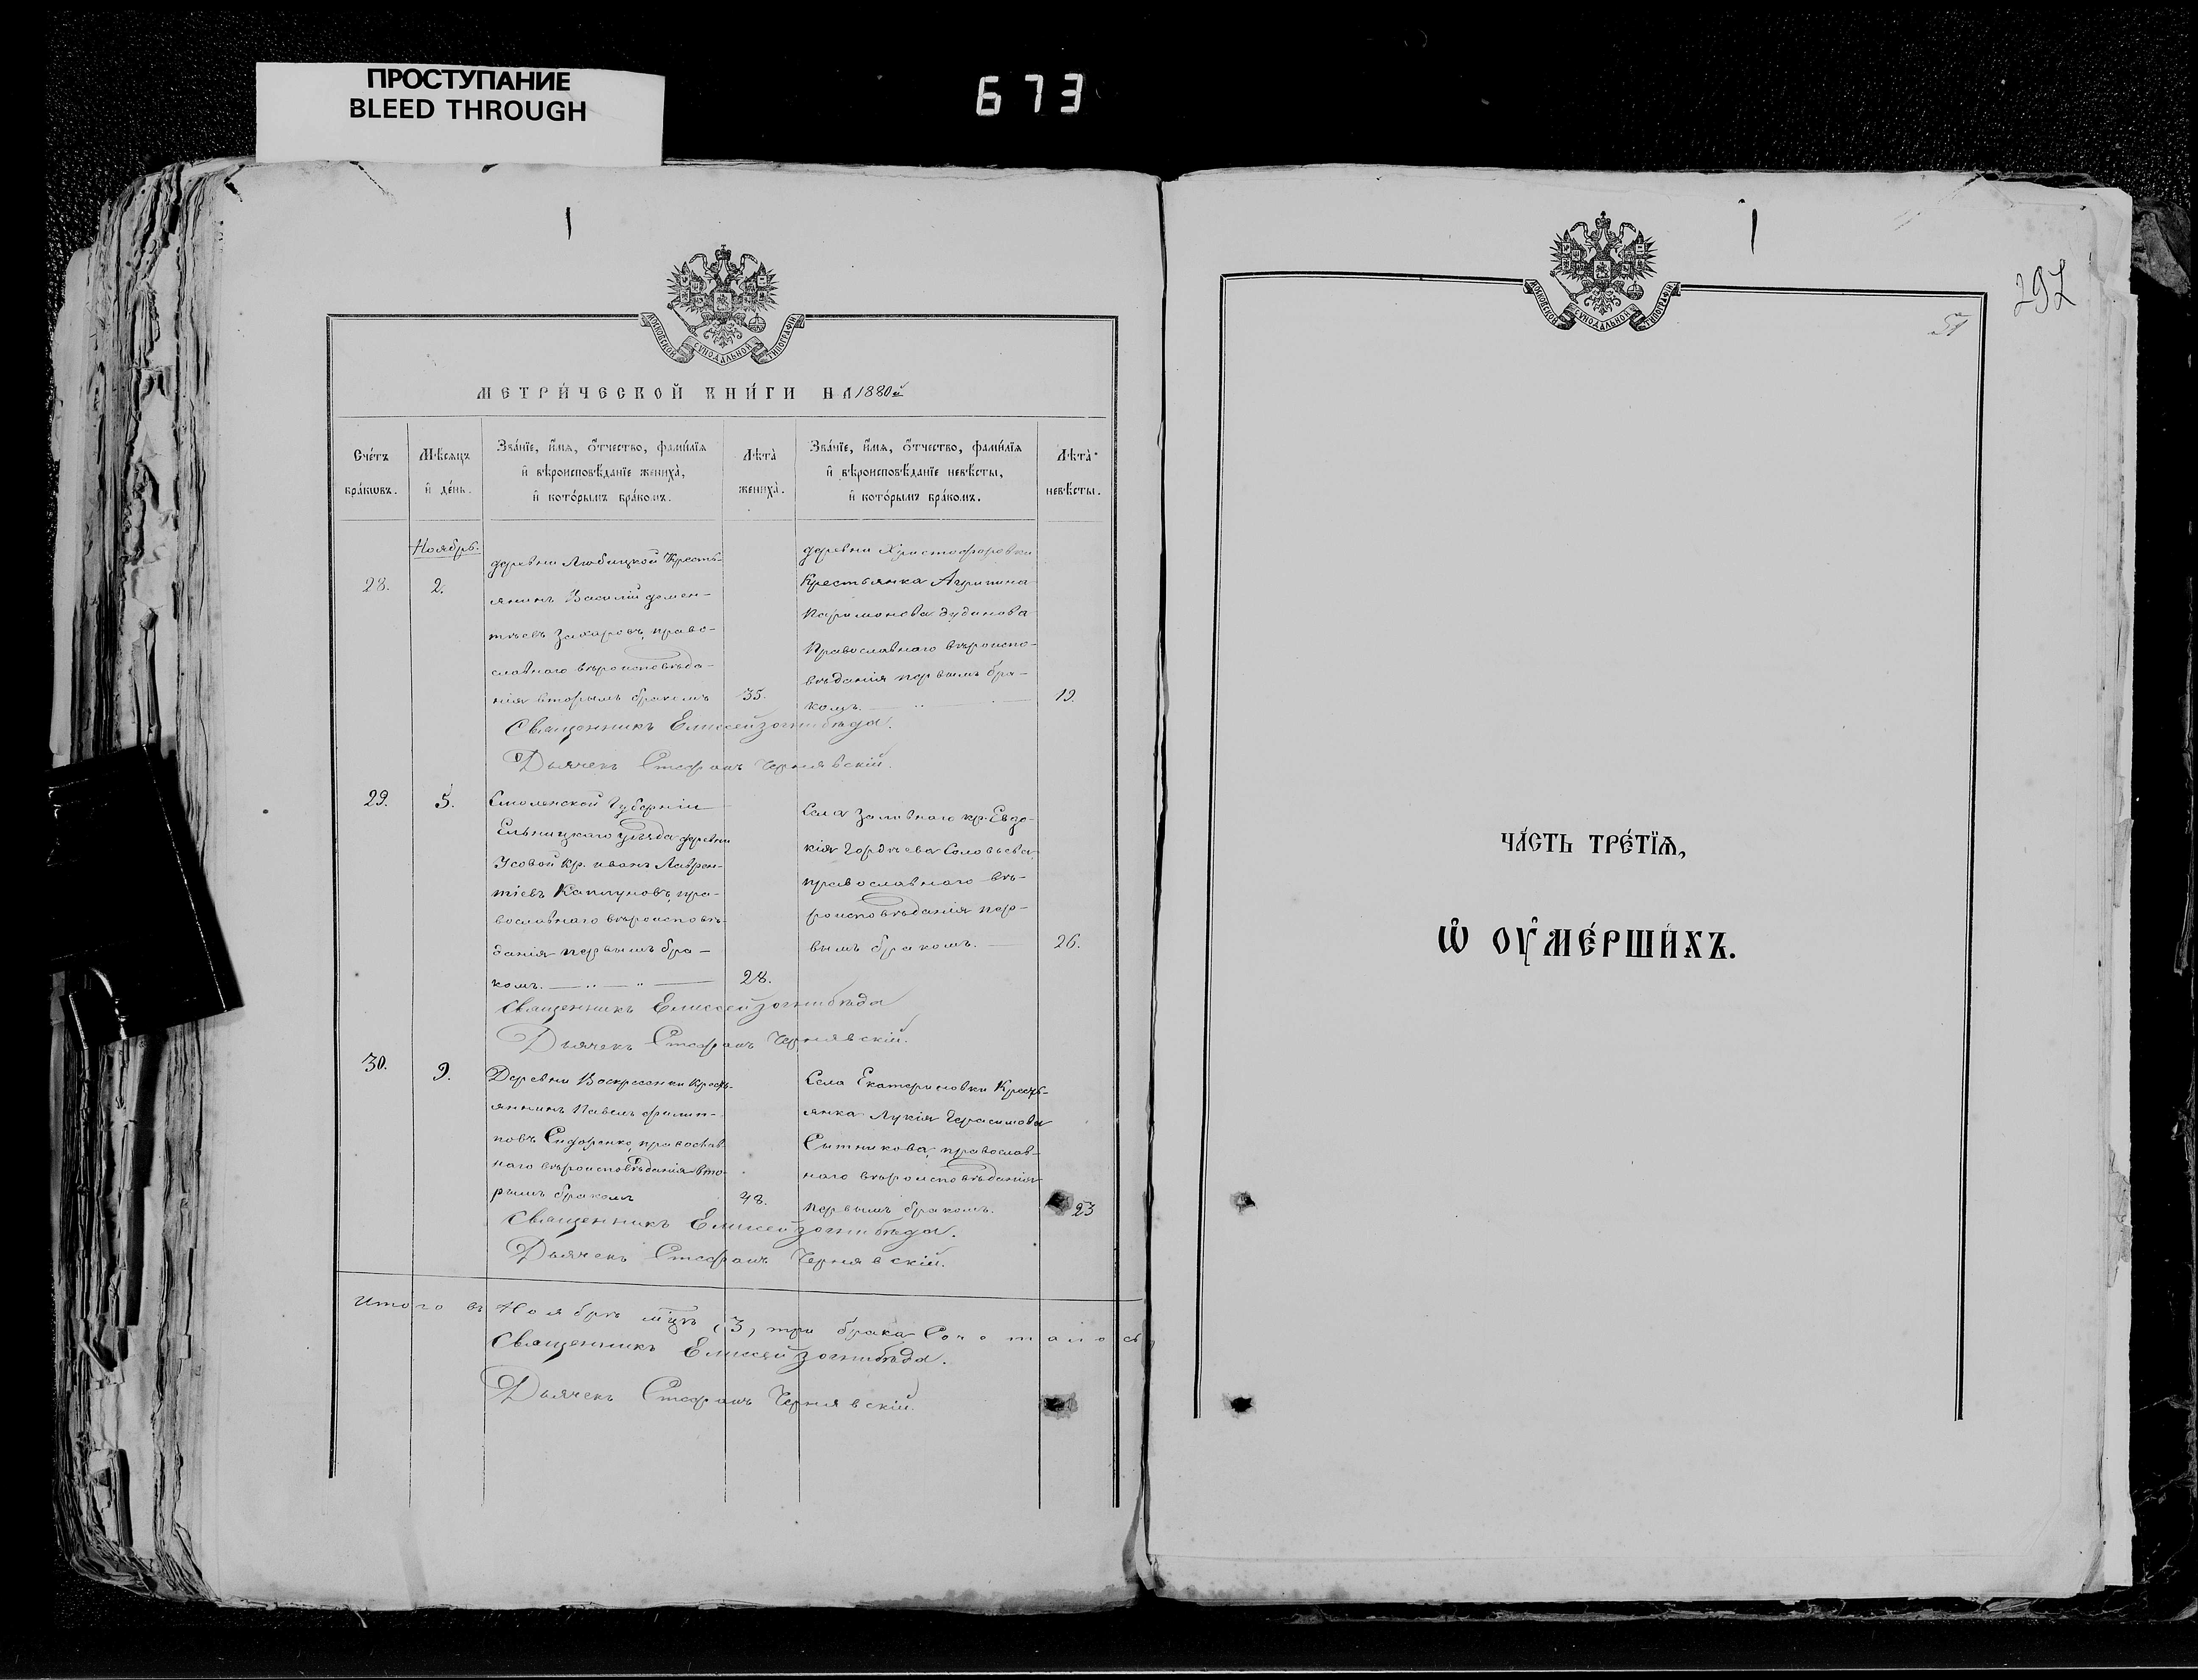 ПРОСТУПАНИЕ
BLEED THROUGH
673
МОСКОВСКОЙ СѴНОДАЛЬНОЙ ТИПОГРАФІИ
МЕТРИ́ЧЕСКОЙ КНИ́ГИ НА 1880й
Сче́тъ бра́кѡвъ.
Мѣ́сяцъ и҆ де́нь.
Зва́нїе, и҆́мѧ, ѻ҆́тчество, фами́лїѧ и҆ вѣроисповѣ́данїе жениха̀, и҆ кото́рымъ бра́комъ.
Лѣ́та жениха̀.
Зва́нїе, и҆́мѧ, ѻ҆́тчество, фами́лїѧ и҆ вѣроисповѣ́данїе невѣ́сты, и҆ кото́рымъ бра́комъ.
Лѣ́та невѣ́сты.
Ноябрь.
28.
2.
деревни Любицкой Кресть-
янинъ Василій Домен-
тіевъ Захаровъ, право-
славнаго вѣроисповѣда-
нія вторымъ бракомъ
35.
деревни Христофоровки
Крестьянка Агрипина
Парамонова Дудинова
Православнаго вѣроиспо-
вѣданія первымъ бра-
комъ.
19.
Священникъ Елисей Зогнибѣда.
Дьячекъ Стефанъ Чернявскій.
29.
5.
Смоленской Губерніи
Ельницкаго уѣзда деревни
Усовой кр. Иванъ Лаврен-
тіевъ Каплуновъ, пра-
вославнаго вѣроисповѣ-
данія первымъ бра-
комъ.
28.
Села Заливнаго кр. Евдо-
кія Гордѣева Соловьева,
православнаго вѣ-
роисповѣданія пер-
вымъ бракомъ.
26.
Священникъ Елисей Зогнибѣда
Дьячекъ Стефанъ Чернявскій.
30.
9.
Деревни Воскресенки Кресть-
янинъ Павелъ Филип-
повъ Сидоренко, православ-
наго вѣроисповѣданія вто-
рымъ бракомъ
48.
Села Екатериновки Кресть-
янка Лукія Герасимова
Сытникова, православ-
наго вѣроисповѣданія
первымъ бракомъ.
23
Священникъ Елисей Зогнибѣда.
Дьячекъ Стефанъ Чернявскій.
Итого въ Ноябрѣ мцѣ (3) три брака Сочеталось
Священникъ Елисей Зогнибѣда.
Дьячекъ Стефанъ Чернявскій.
МОСКОВСКОЙ СѴНОДАЛЬНОЙ ТИПОГРАФІИ
ЧА́СТЬ ТРЕ́ТЇѦ,
Ѡ҆ ОУ҆МЕ́РШИХЪ.